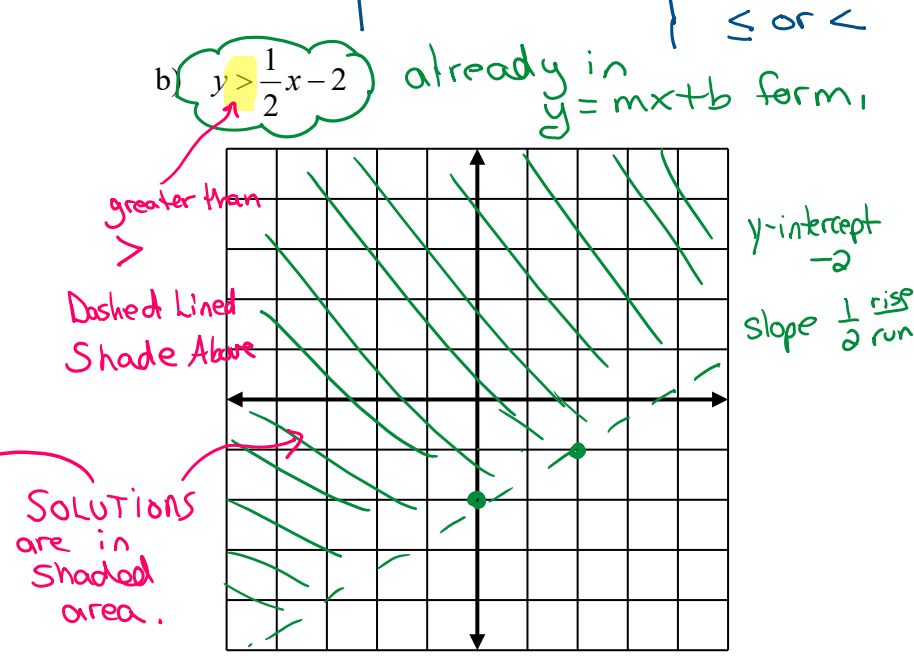 ≤ or <
b) y > 1/2 x − 2
already in
y = mx+b form,
greater than
>
Dashed Lined
Shade Above
y-intercept
-2
slope 1/2 rise/run
SOLUTIONS
are in
shaded
area.